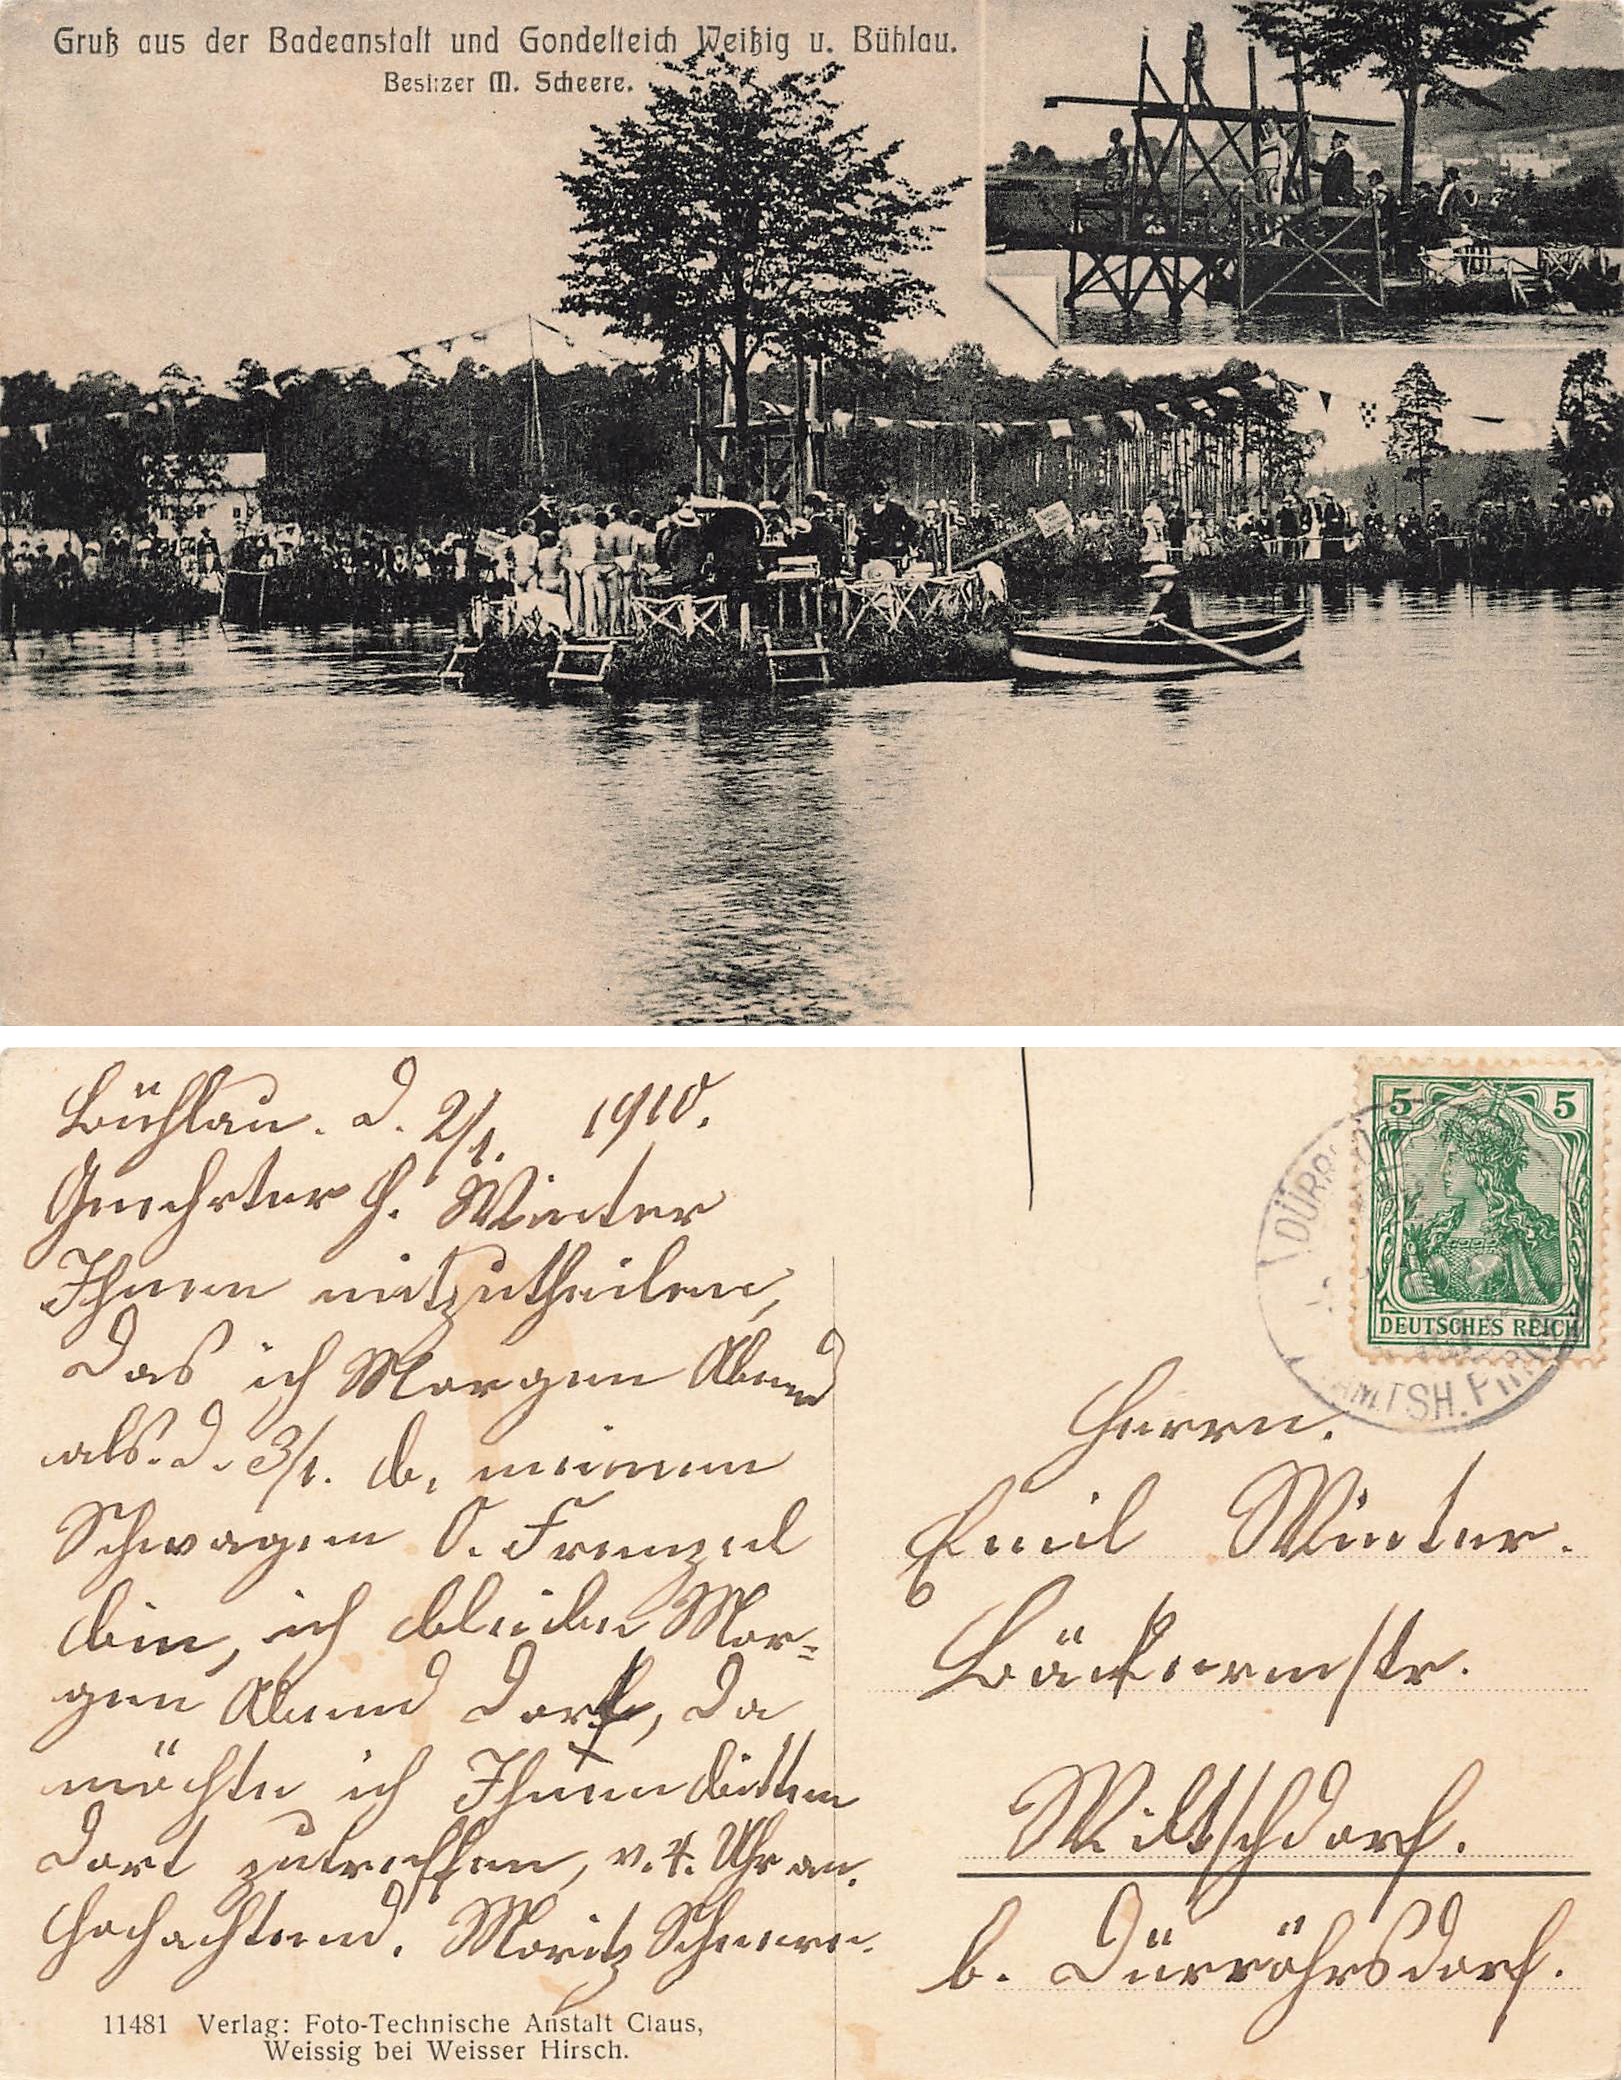 Gruß aus der Badeanstalt und Gondelteich Weißig u. Bühlau.
Besitzer M. Scheere.
Bühlau. d. 2/1. 1910.
Geehrter H. Winter
Ihnen mitzutheilen,
das ich Morgen Abend
als. d. 3/1. b. meinen
Schwagen O. Frenzel
bin, ich bleibe Mor-
gen Abend dort, da
möchte ich Ihnen bitten
dort zutreffen, v. 4. Uhr an.
Hochachtend. Moritz Scheere.
11481 Verlag: Foto-Technische Anstalt Claus,
Weissig bei Weisser Hirsch.
5 5
DEUTSCHES REICH
Herrn.
Emil Winter.
Bäckermstr.
Wiltschdorf.
b. Dürröhrsdorf.